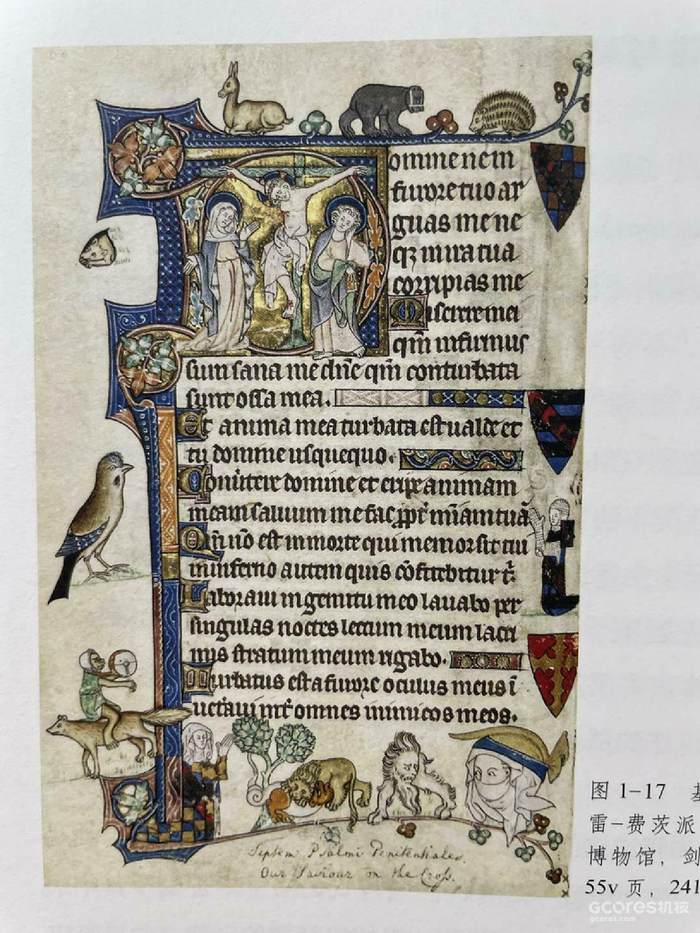 Domine ne in
furore tuo ar
guas me ne
qȝ in ira tua
corripias me
Miserere mei
qm̄ infirmus
sum sana me dn̄e qm̄ conturbata
sunt ossa mea.
Et anima mea turbata est ualde et
tu domine usquequo.
Conūtere domine et eripe animam
meam saluum me fac ꝓpt̄ mīam tuā
Qm̄ nō est in morte qui memor sit tui
in inferno autem quis cōfitebitur t̄.
Laboraui in gemitu meo lauabo per
singulas noctes lectum meum lacri
mis stratum meum rigabo.
Turbatus est a furore oculus meus ī
uet̄aui int̄ omnes inimicos meos.
Septem Psalmi Penitentiales.
Our Saviour on the Cross.
图 1-17
雷-费茨派
博物馆，剑
55v 页，241
GCORES机核
gcores.com